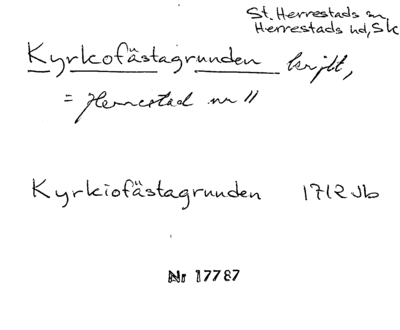 St. Herrestads sn
Herrestads hd, Sk
Kyrkofästagrunden
= Herrestad nr 11
Kyrkiofästagrunden 1712 Jb
Nr 17787